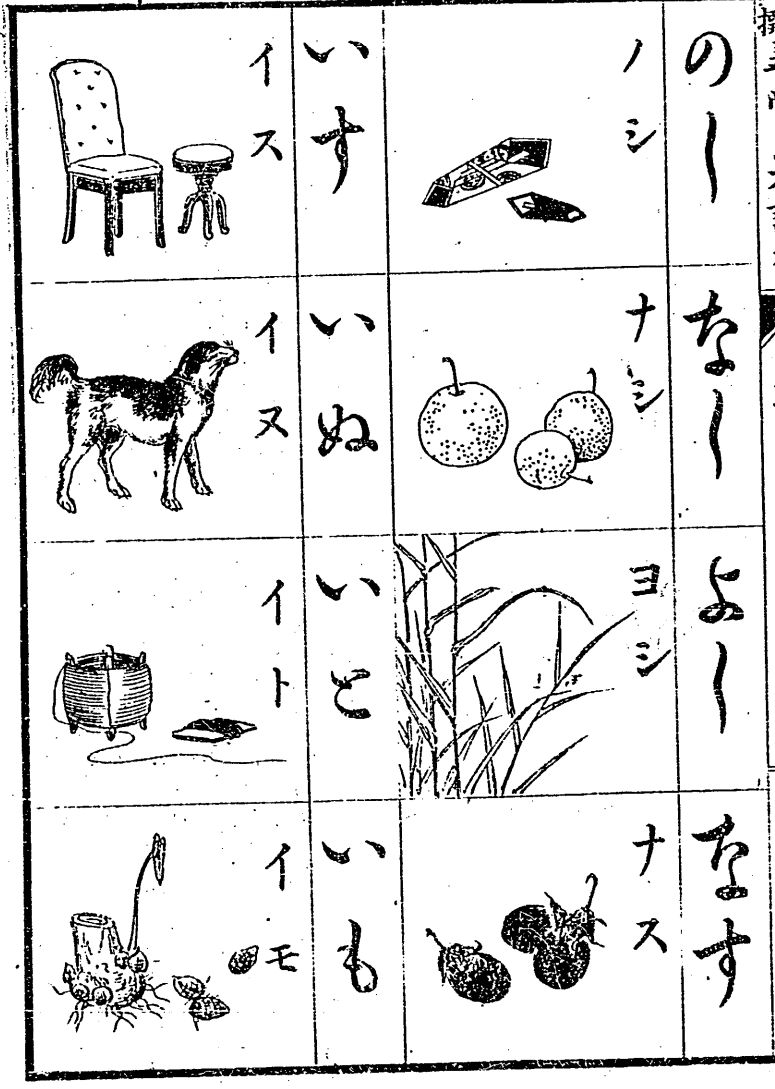 のし
ノシ
なし
ナシ
よし
ヨシ
なす
ナス
いす
イス
いぬ
イヌ
いと
イト
いも
イモ